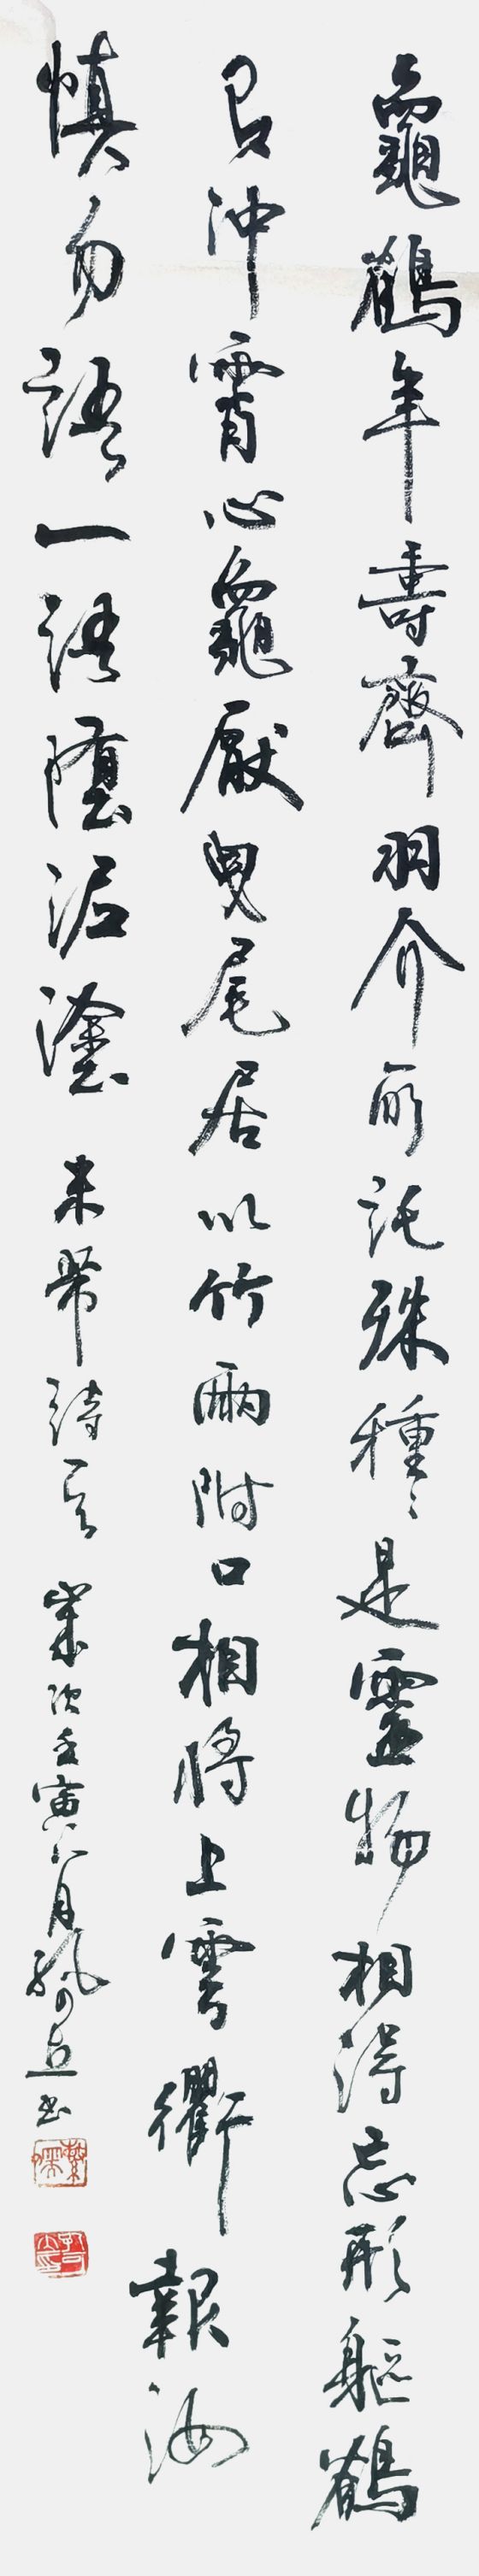 龜鶴年壽齊羽介所託殊種〻是靈物相得忘形軀鶴
有沖霄心龜厭曳尾居以竹兩附口相將上雲衢報汝
慎勿語一語墮泥塗 米芾詩 歲次壬寅月書